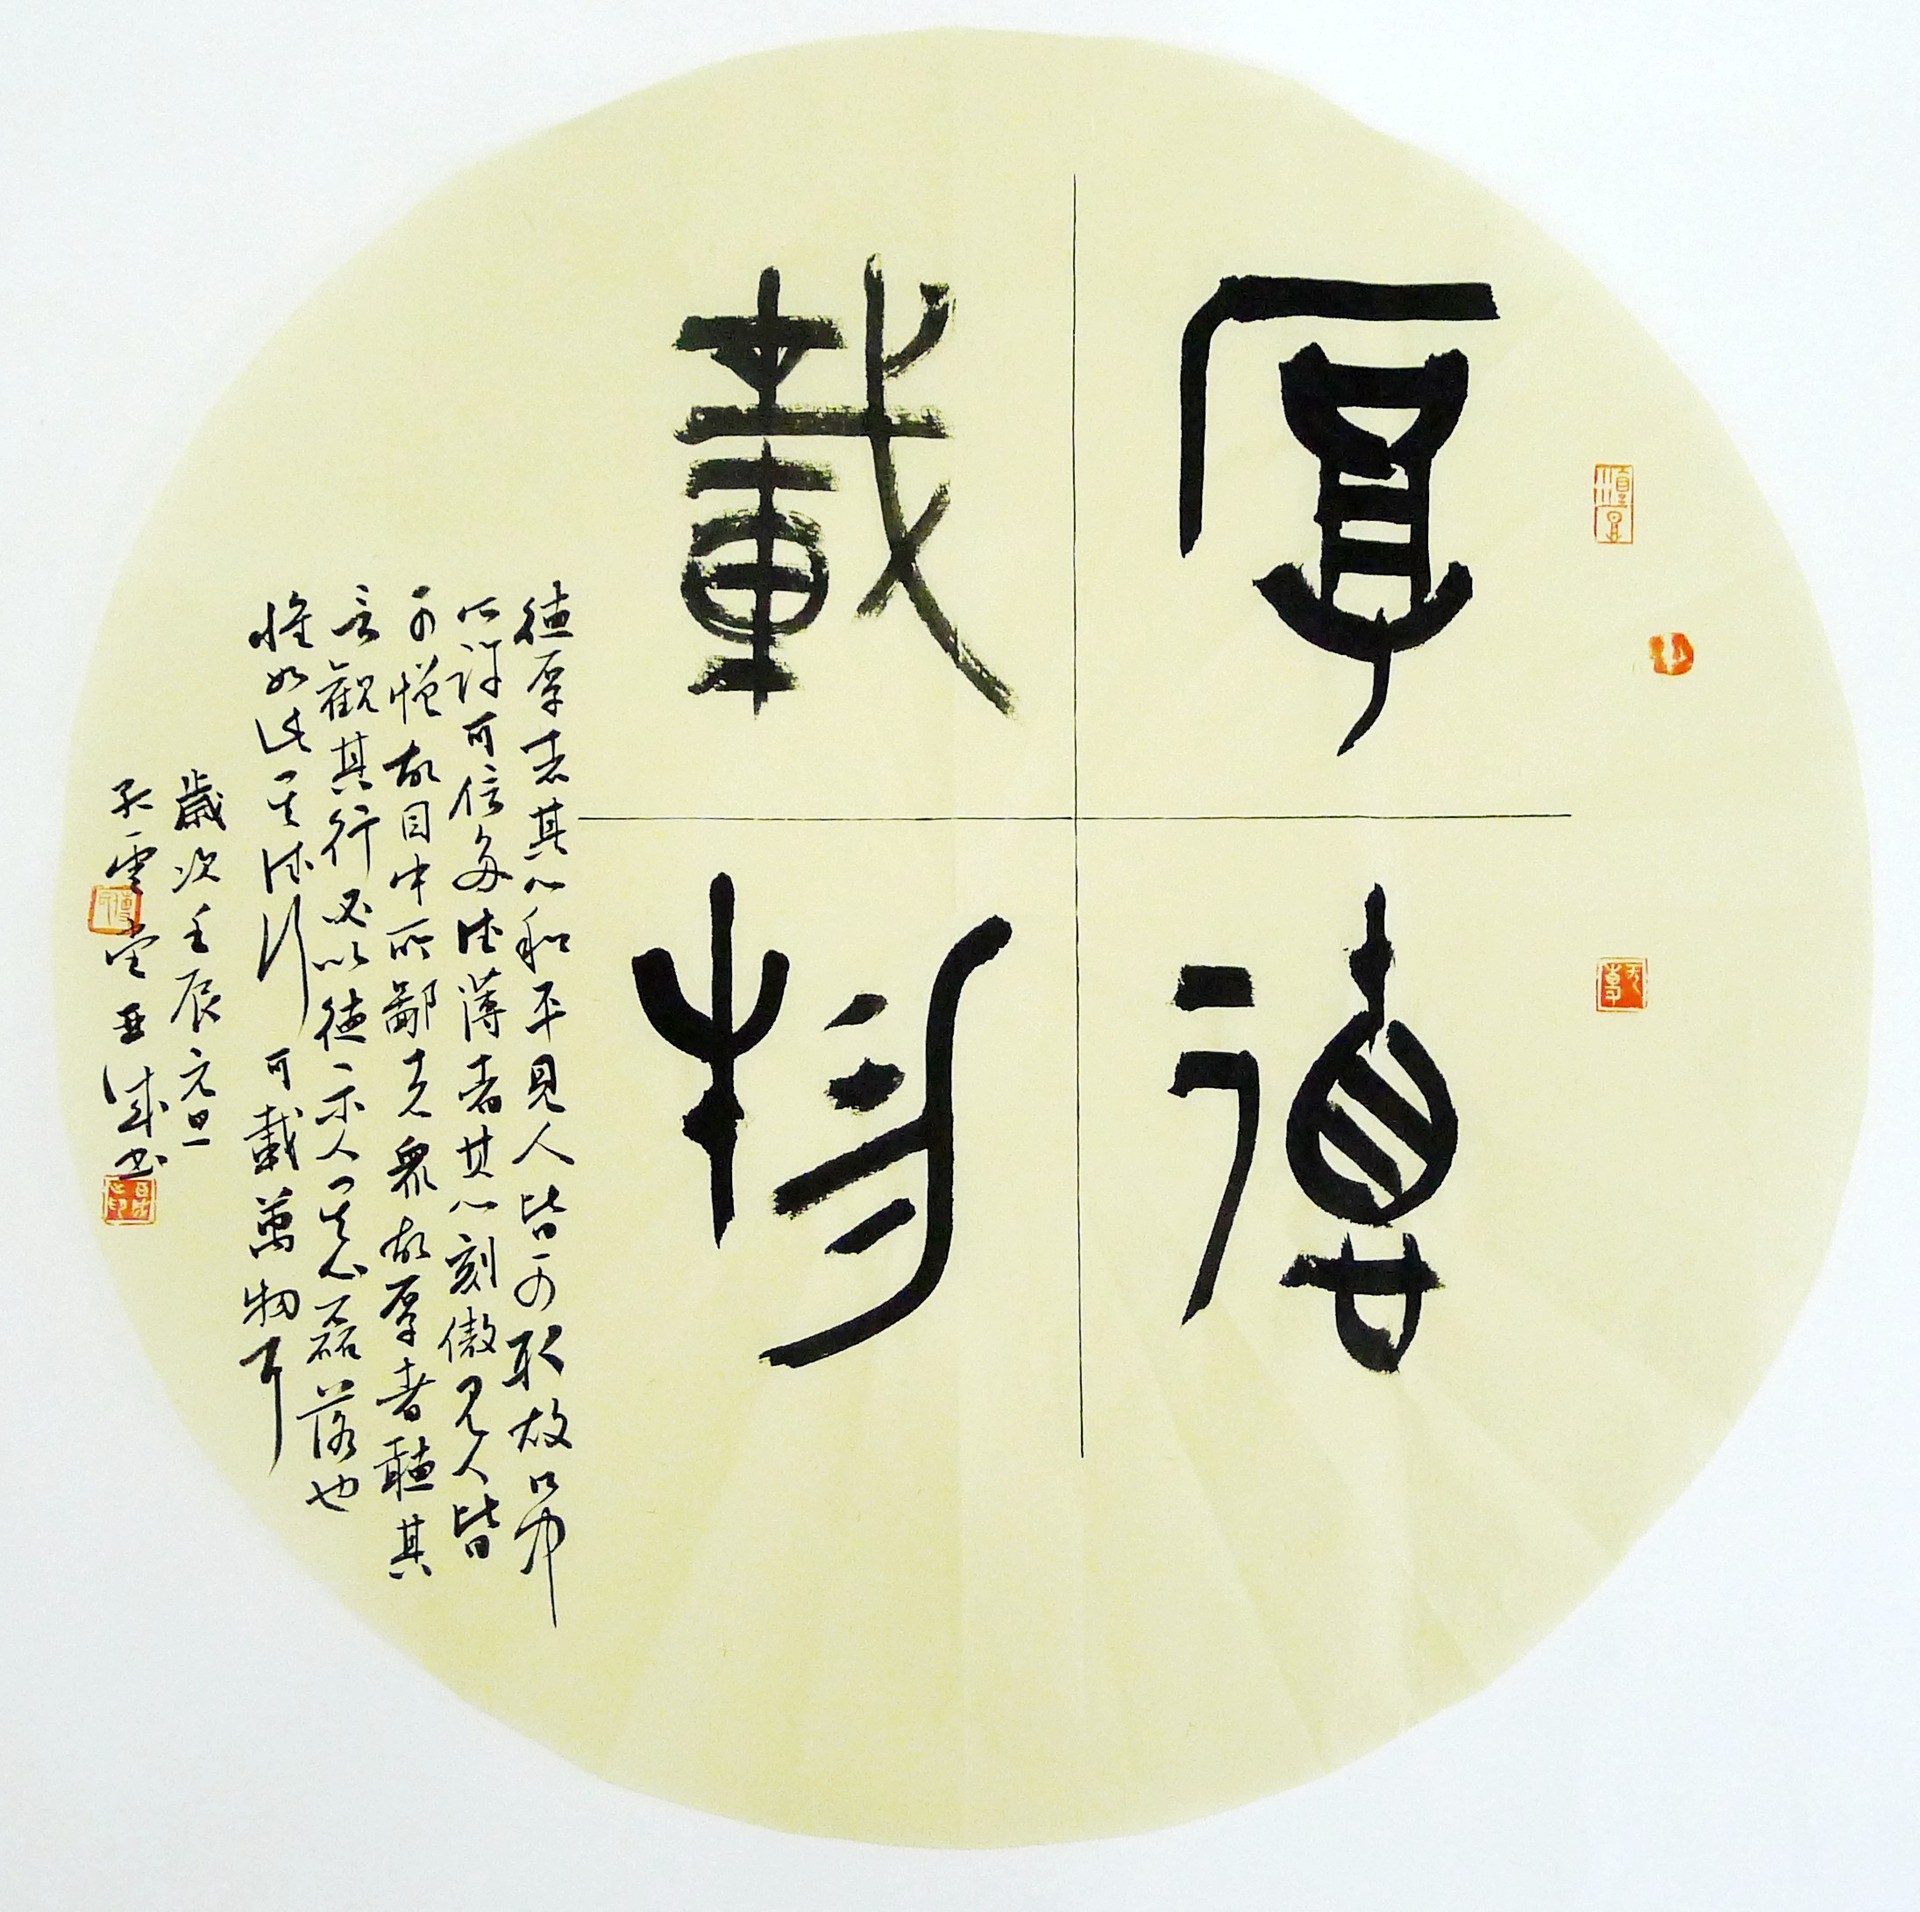 厚德
載物
德厚者其心和平見人皆可取故口中
所許可信多德薄者其心刻傲見人皆
可憎故目中所鄙者衆故厚者聽其
言觀其行必以德示人其心磊落也
惟如此其德行可載萬物耳
歲次壬辰元旦
亞成書